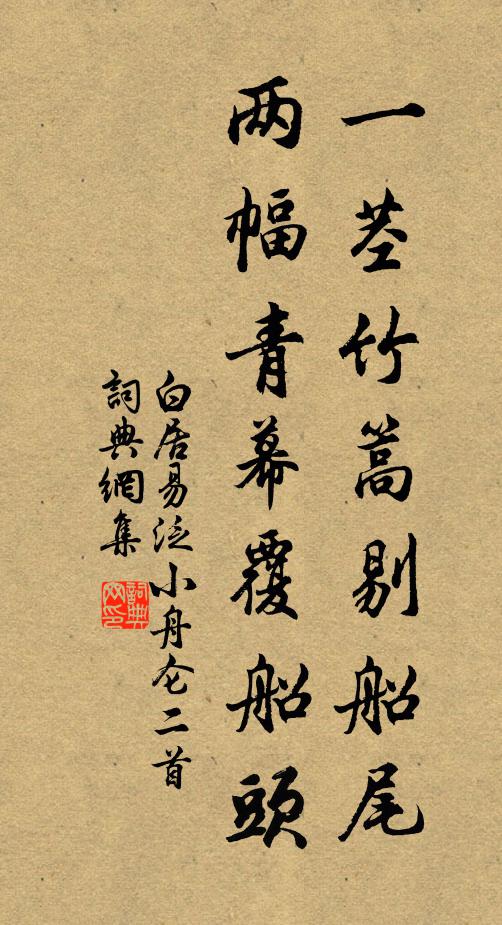 一茎竹篙剔船尾
两幅青幕覆船頭
白居易泛小舟仑二首
詞典網集
詞典网印